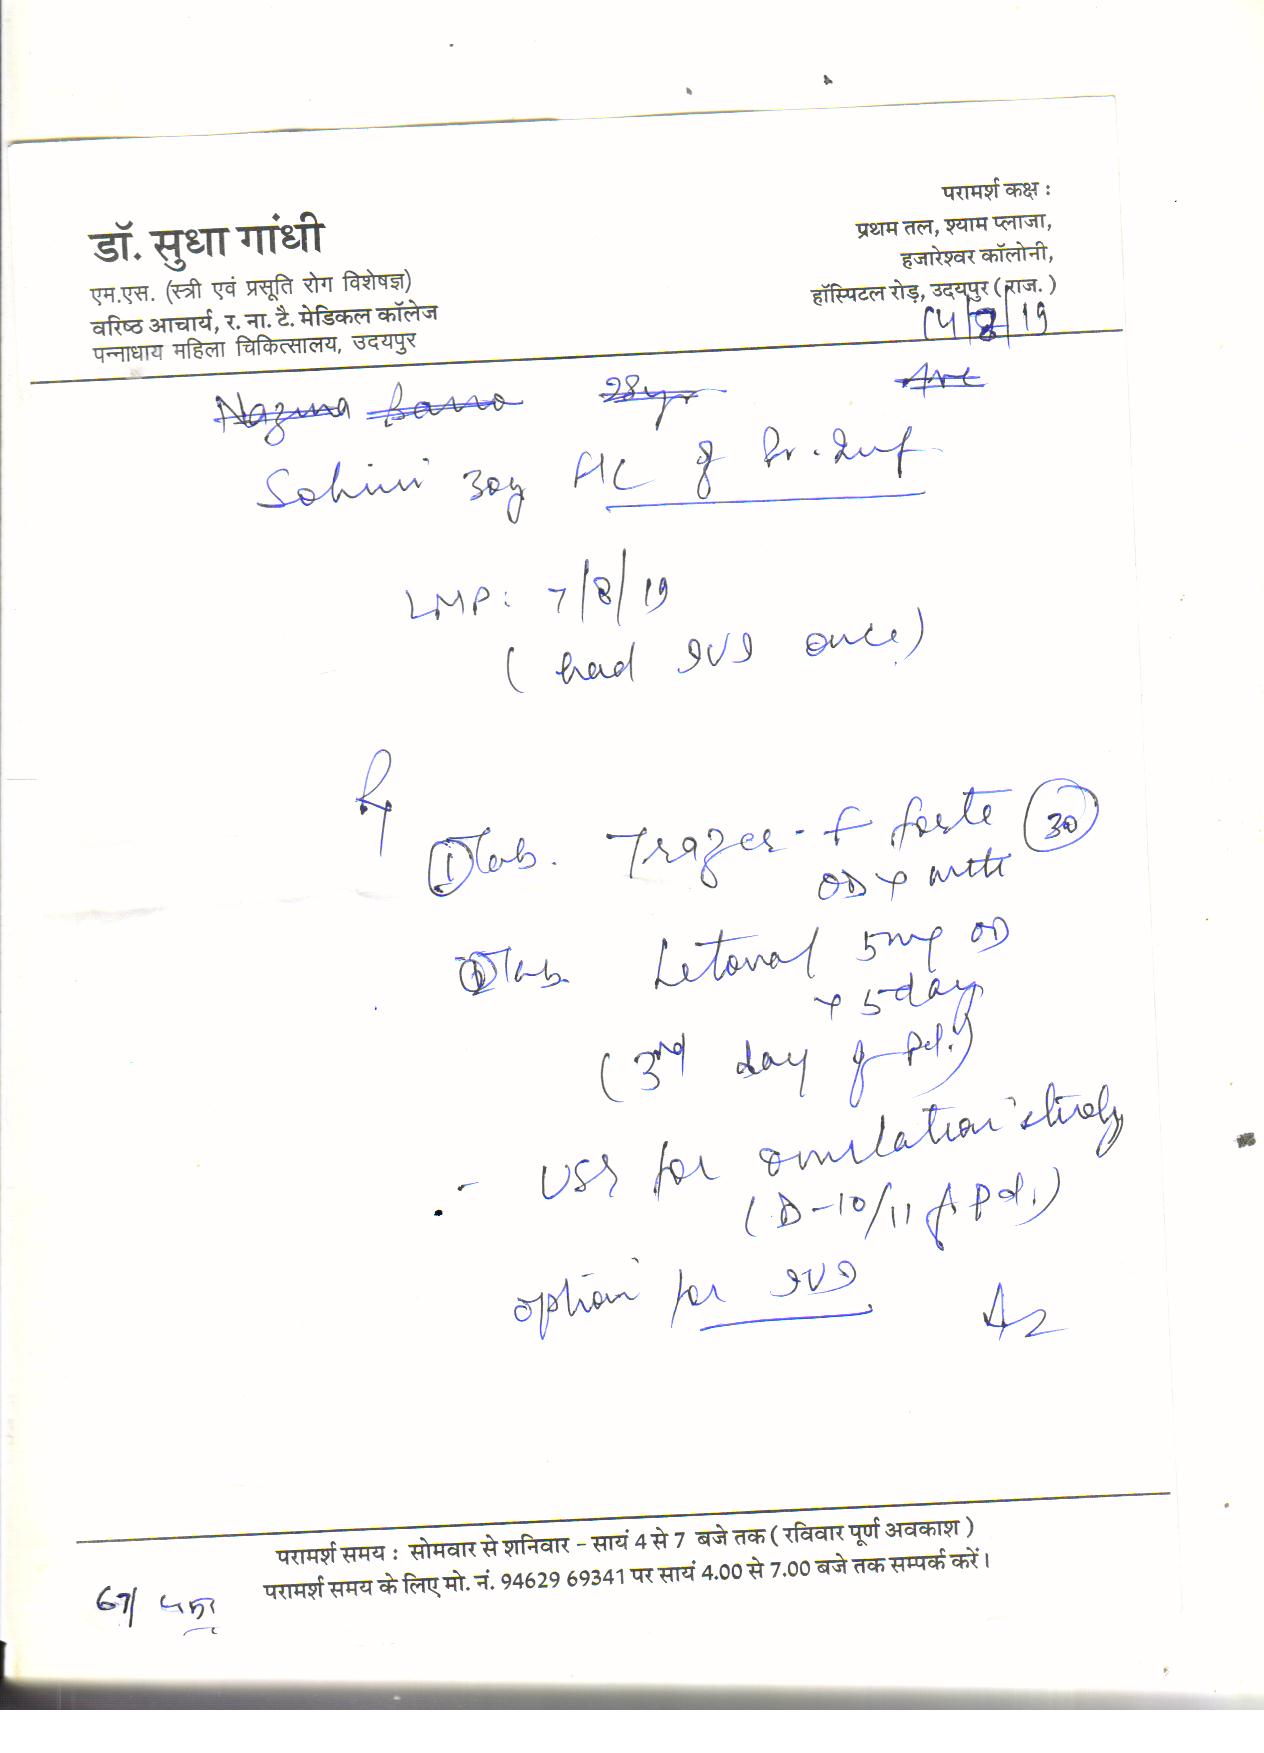 परामर्श कक्ष :
प्रथम तल, श्याम प्लाजा,
हजारेश्वर कॉलोनी,
हॉस्पिटल रोड़, उदयपुर ( राज. )
डॉ. सुधा गांधी
एम.एस. (स्त्री एवं प्रसूति रोग विशेषज्ञ)
वरिष्ठ आचार्य, र. ना. टै. मेडिकल कॉलेज
पन्नाधाय महिला चिकित्सालय, उदयपुर
14/8/19
Nazma Bano 28yr
Sohini 30y of Pr. Inf
LMP: 7/8/19
( had IUI once )
Rx
① Tab. Trazer-F forte 30
OD x
Tab. Letoval 5mg OD
x 5 day
( 3rd day of Pd. )
- USG for ovulation study
( D-10/11 of Pd. )
option for IUI
परामर्श समय : सोमवार से शनिवार - सायं 4 से 7 बजे तक ( रविवार पूर्ण अवकाश )
परामर्श समय के लिए मो. नं. 94629 69341 पर सायं 4.00 से 7.00 बजे तक सम्पर्क करें।
67/